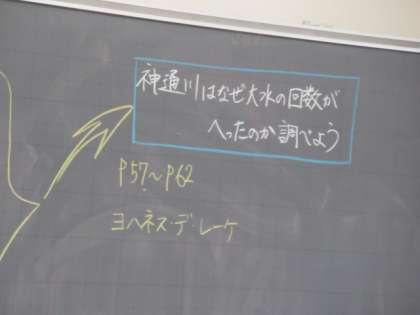 神通川はなぜ大水の回数が
へったのか調べよう
P57~P62
ヨハネス・デ・レーケ